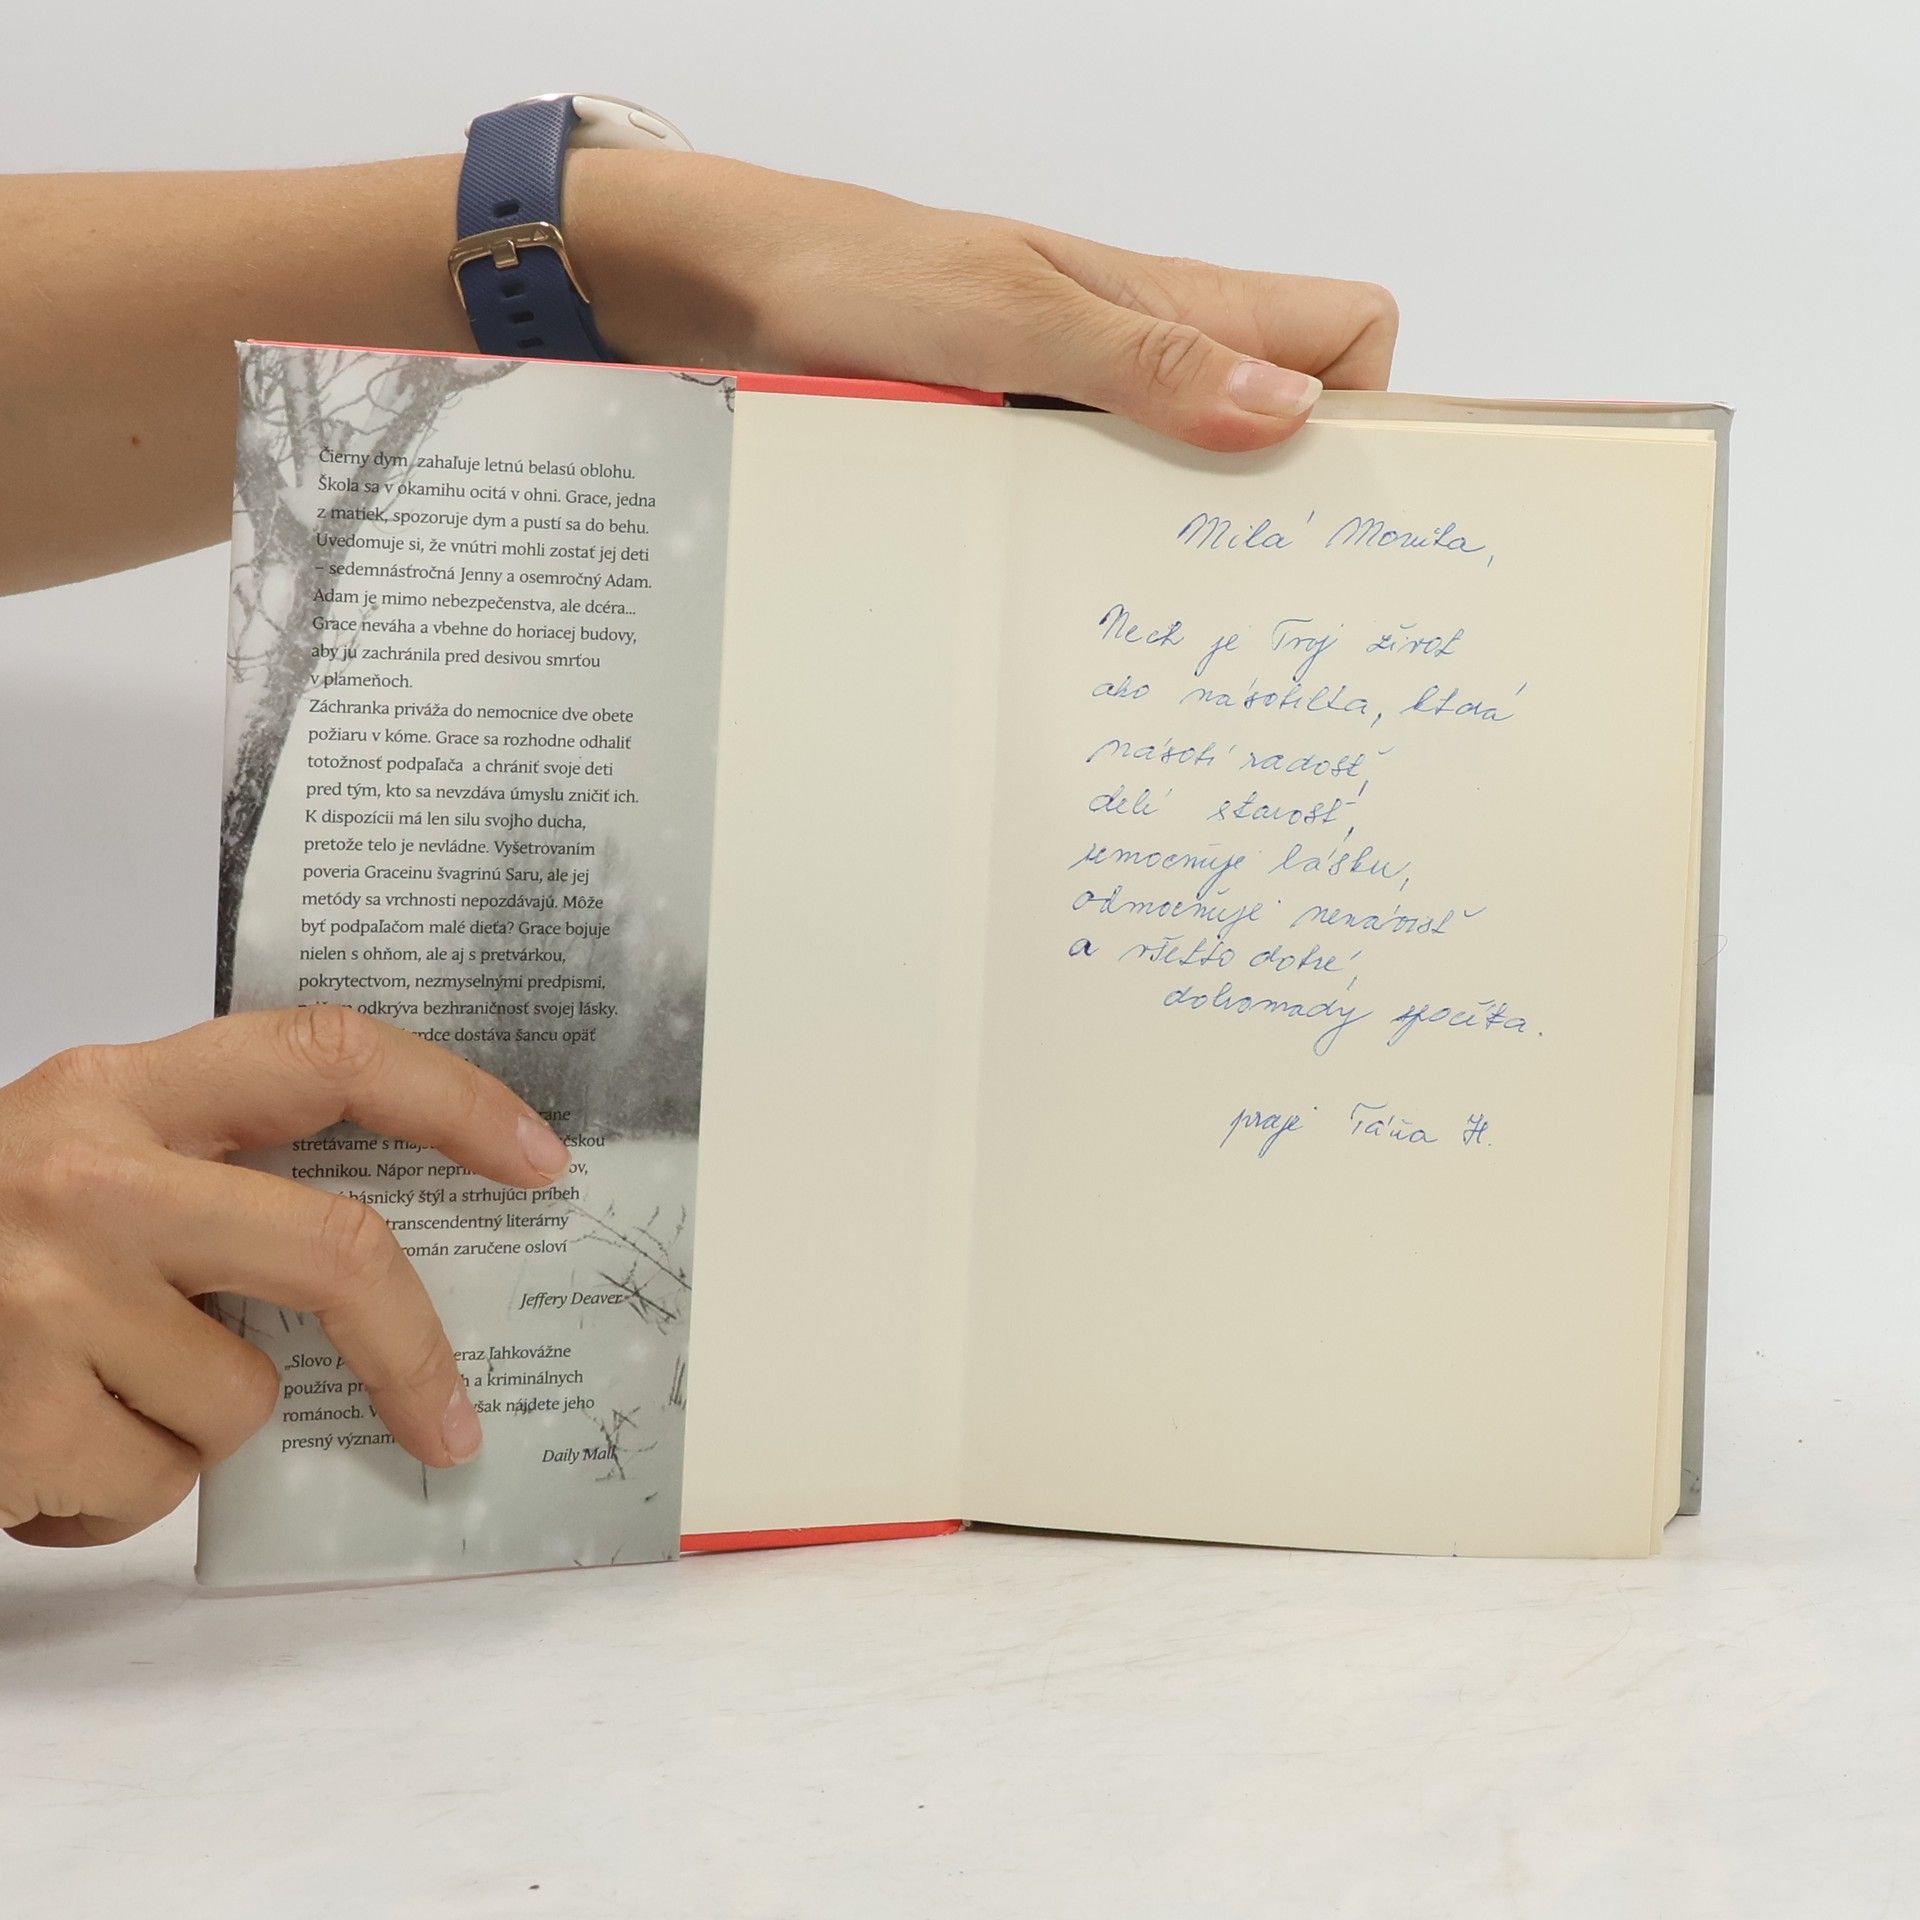 Čierny dym zahaľuje letnú belasú oblohu.
Škola sa v okamihu ocitá v ohni. Grace, jedna
z matiek, spozoruje dym a pustí sa do behu.
Uvedomuje si, že vnútri mohli zostať jej deti
– sedemnásťročná Jenny a osemročný Adam.
Adam je mimo nebezpečenstva, ale dcéra...
Grace neváha a vbehne do horiacej budovy,
aby ju zachránila pred desivou smrťou
v plameňoch.
Záchranka priváža do nemocnice dve obete
požiaru v kóme. Grace sa rozhodne odhaliť
totožnosť podpaľača a chrániť svoje deti
pred tým, kto sa nevzdáva úmyslu zničiť ich.
K dispozícii má len silu svojho ducha,
pretože telo je nevládne. Vyšetrovaním
poveria Graceinu švagrinú Saru, ale jej
metódy sa vrchnosti nepozdávajú. Môže
byť podpaľačom malé dieťa? Grace bojuje
nielen s ohňom, ale aj s pretvárkou,
pokrytectvom, nezmyselnými predpismi,
odkrýva bezhraničnosť svojej lásky.
dostáva šancu opäť
stretávame s
technikou. Nápor
básnický štýl a strhujúci príbeh
transcendentný literárny
román zaručene osloví
Jeffery Deaver
„Slovo ľahkovážne
používa a kriminálnych
románoch. však nájdete jeho
presný význam
Daily Mail
Milá Monika,
Nech je Tvoj život
ako násobilka, ktorá
násobí radosť,
delí starosť,
umocňuje lásku,
odmocňuje nenávisť
a všetko dobré,
dohromady spočíta.
praje Táňa H.